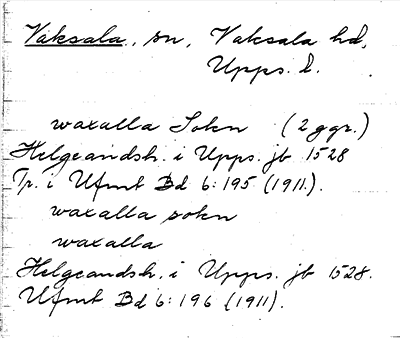 Vaksala, sn, Vaksala hd,
Upps. l.
waxalla Sokn (2 ggr.)
Helgeandsh. i Upps. jb 1528
Tr. i Ufmt Bd 6:195 (1911).
waxalla sokn
waxalla
Helgeandsh. i Upps. jb 1528.
Ufmt Bd 6:196 (1911).